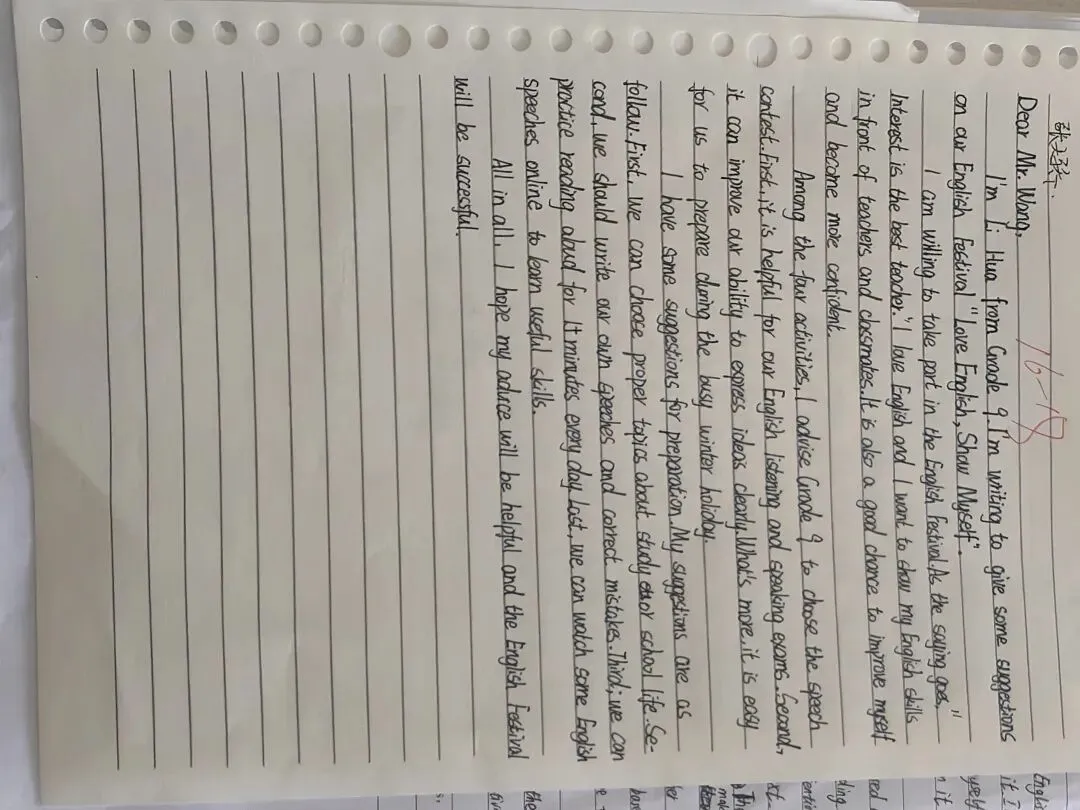 Dear Mr. Wang,
I'm Li Hua from Grade 9. I'm writing to give some suggestions
on our English Festival "Love English, Show Myself".
I am willing to take part in the English Festival. As the saying goes, "
Interest is the best teacher." I love English and I want to show my English skills
in front of teachers and classmates. It is also a good chance to improve myself
and become more confident.
Among the four activities, I advise Grade 9 to choose the speech
contest. First, it is helpful for our English listening and speaking exams. Second,
it can improve our ability to express ideas clearly. What's more, it is easy
for us to prepare during the busy winter holiday.
I have some suggestions for preparation. My suggestions are as
follow. First, we can choose proper topics about study or school life. Se-
cond, we should write our own speeches and correct mistakes. Third, we can
practice reading aloud for 1t minutes every day. Last, we can watch some English
speeches online to learn useful skills.
All in all, I hope my advice will be helpful and the English Festival
will be successful.
16-18